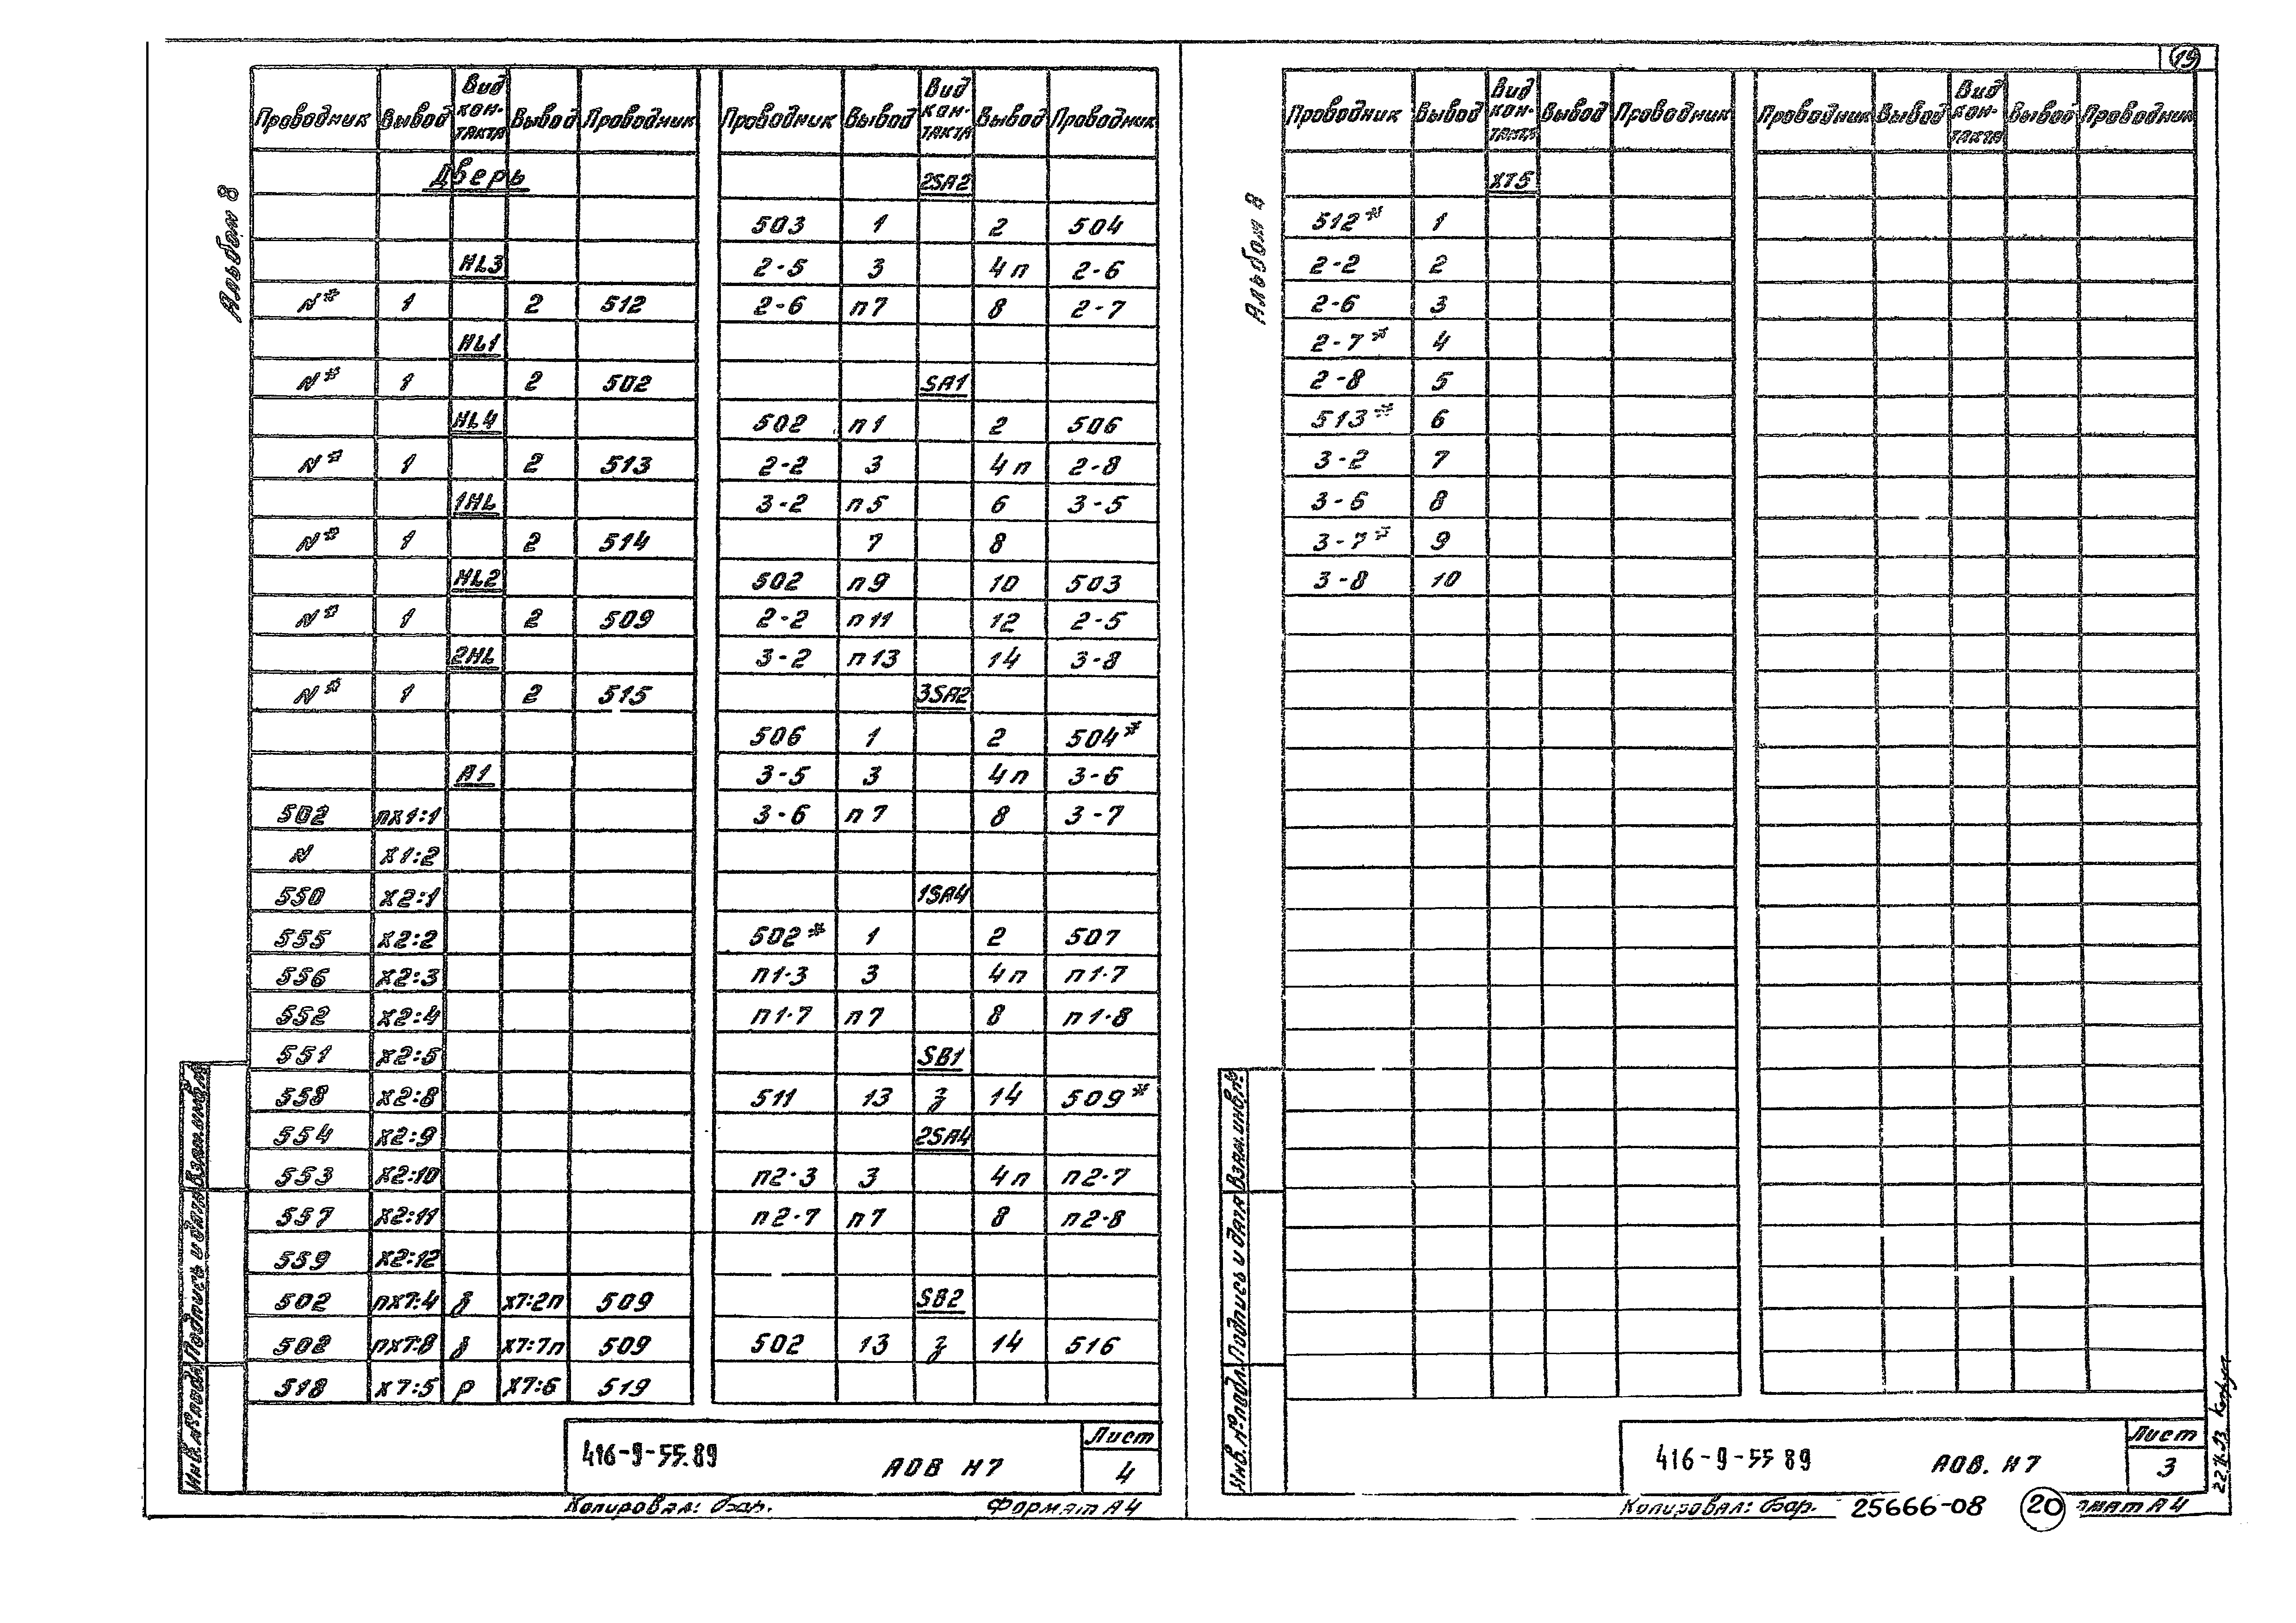 19
Альбом 8
Проводник Вывод Вид кон- такта Вывод Проводник
Дверь
HL3
N* 1 2 512
HL1
N* 1 2 502
HL4
N* 1 2 513
1HL
N* 1 2 514
HL2
N* 1 2 509
2HL
N* 1 2 515
A1
502 пX1:1
N X1:2
550 X2:1
555 X2:2
556 X2:3
552 X2:4
551 X2:5
558 X2:8
554 X2:9
553 X2:10
557 X2:11
559 X2:12
502 пX7:4 з X7:2п 509
502 пX7:8 з X7:7п 509
518 X7:5 р X7:6 519
Проводник Вывод Вид кон- такта Вывод Проводник
2SA2
503 1 2 504
2-5 3 4п 2-6
2-6 п7 8 2-7
SA1
502 п1 2 506
2-2 3 4п 2-8
3-2 п5 6 3-5
7 8
502 п9 10 503
2-2 п11 12 2-5
3-2 п13 14 3-8
3SA2
506 1 2 504*
3-5 3 4п 3-6
3-6 п7 8 3-7
1SA4
502* 1 2 507
п1-3 3 4п п1-7
п1-7 п7 8 п1-8
SB1
511 13 з 14 509*
2SA4
п2-3 3 4п п2-7
п2-7 п7 8 п2-8
SB2
502 13 з 14 516
Инв.№подл. Подпись и дата Взам.инв.№
416-9-55.89 АОВ Н7
Лист
4
Копировал: Бор. Формат А4
Альбом 8
Проводник Вывод Вид кон- такта Вывод Проводник
XT5
512* 1
2-2 2
2-6 3
2-7* 4
2-8 5
513* 6
3-2 7
3-6 8
3-7* 9
3-8 10
Проводник Вывод Вид кон- такта Вывод Проводник
Инв.№подл. Подпись и дата Взам.инв.№
416-9-55 89 АОВ. Н7
Лист
3
Копировал: Бор. 25666-08 20 мат А4